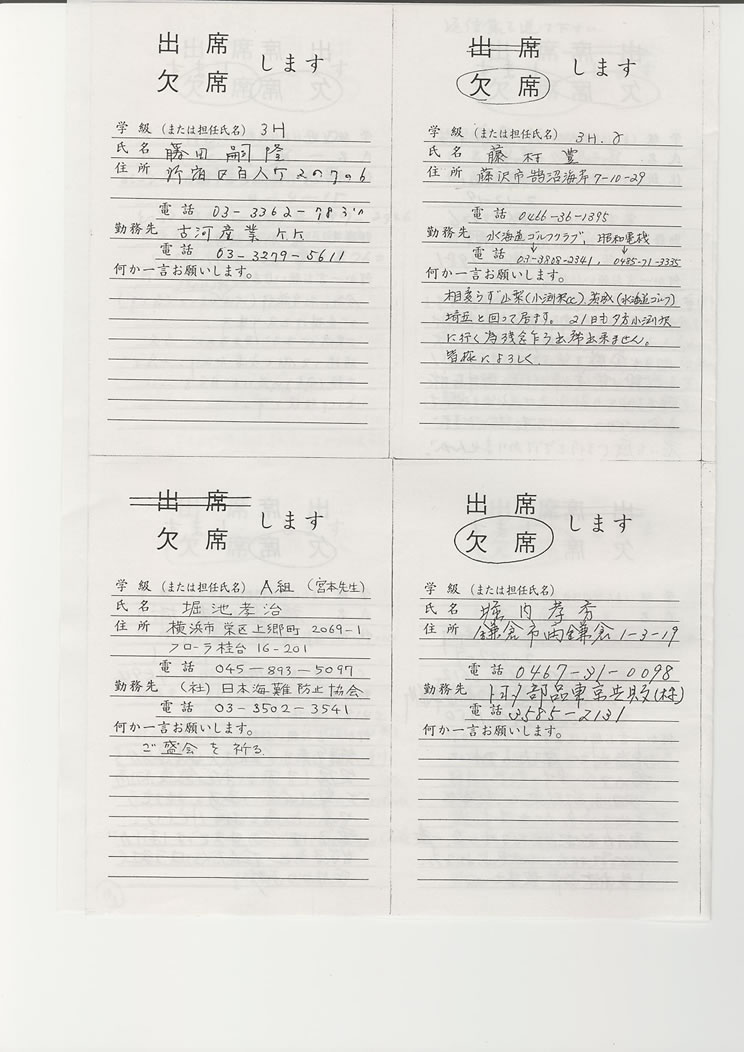 出 席
欠 席
します
学 級 (または担任氏名) 3H
氏 名 藤田 嗣隆
住 所 新宿区百人丁2の7の6
電 話 03-3362-
勤務先 古河産業 K.K
電 話 03-3279-5611
何か一言お願いします。
出 席
欠 席
します
学 級 (または担任氏名) 3H.8
氏 名 藤 村 豊
住 所 藤沢市鵠沼海岸7-10-29
電 話 0466-36-1395
勤務先 水海道ゴルフクラブ, 昭和電機
電 話 03-3808-2341, 0485-71-3335
何か一言お願いします。
相変らず山梨(小渕沢cc) 茨城(水海道ゴルフ)
埼玉と回って居ます。 21日も夕方小渕沢
に行く為残念乍ら出席出来ません。
皆様によろしく
出 席
欠 席
します
学 級 (または担任氏名) A組 (宮本先生)
氏 名 堀池孝治
住 所 横浜市栄区上郷町 2069-1
フローラ桂台 16-201
電 話 045-893-5097
勤務先 (社)日本海難防止協会
電 話 03-3502-3541
何か一言お願いします。
ご盛会を祈る.
出 席
欠 席
します
学 級 (または担任氏名)
氏 名 堀内孝秀
住 所 鎌倉市西鎌倉1-3-19
電 話 0467-31-0098
勤務先 トヨタ部品東京共販(株)
電 話 3585-2131
何か一言お願いします。